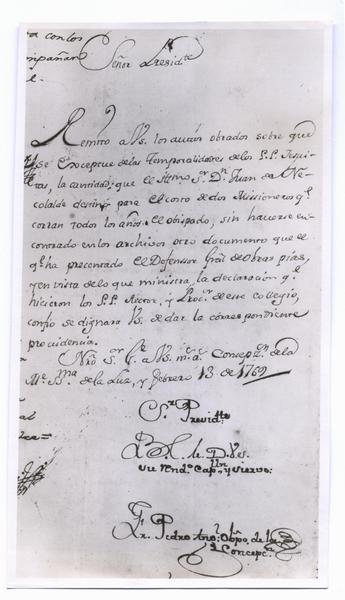 a con los
mpañan
Señor Presid.te
Remito a V.S. los autos obrados sobre que
se exceptue de las Temporalidades de los P.P. Jesui-
tas, la cantidad, que el Illmo. S.r D.n Juan de Ne
colalde destinó para el costo de dos Missioneros q.e
corran todos los años el obispado, sin haverse en
contrado en los archivos otro documento que el
q.e ha presentado el Defensor Gral de Obras pias,
y en vista de lo que ministra, la declaracion q.e
hicieron los P.P. Rector, y Proc.r de este collegio,
confio se dignará V.S. de dar la correspondiente
providencia.
Nrô S.or G.e a V.S. m.s a.s Concepz.n de la
M.e SS.ma de la Luz, y febrero 13 de 1769
S.or Presid.te
B. L. M. de V.S.
su rend.o Cap.n y siervo
Fr. Pedro Ang.l Obpo. de la
Concepc.n